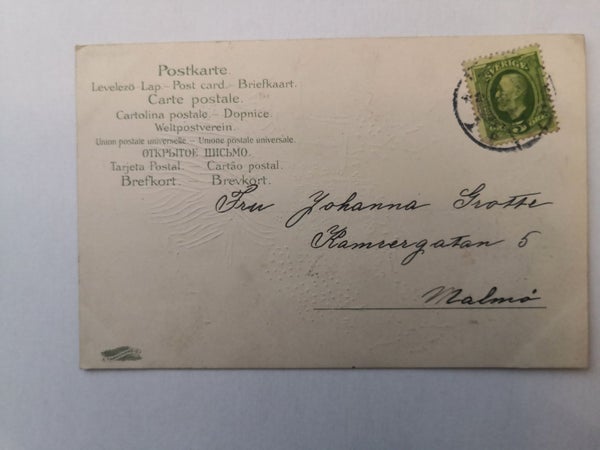 Postkarte.
Levelező-Lap. – Post card. – Briefkaart.
Carte postale.
Cartolina postale. – Dopnice.
Weltpostverein.
Union postale universelle. – Unione postale universale.
ОТКРЫТОЕ ПИСЬМО.
Tarjeta Postal. – Cartão postal.
Brefkort. Brevkort.
SVERIGE
5 5
Fru Johanna Grotte
Ramsergatan 5
Malmö